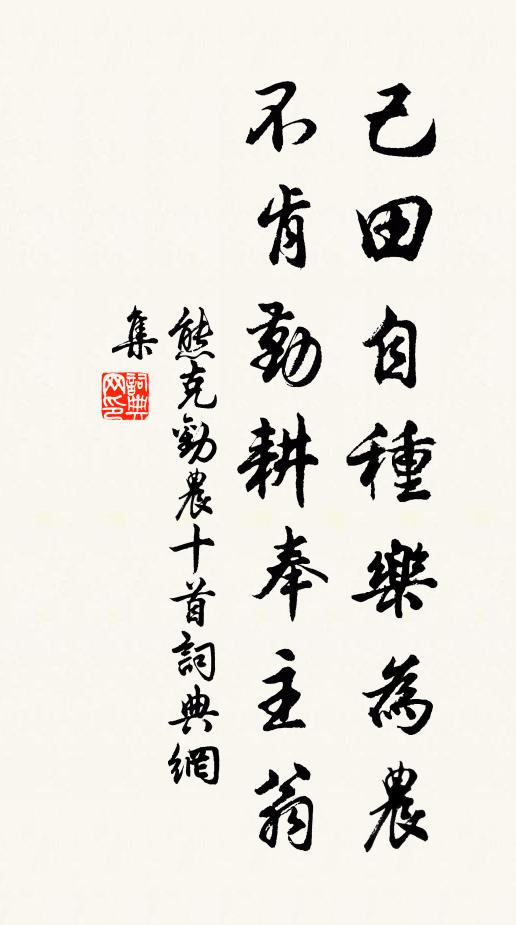 己田自種樂為農
不肯勤耕奉主翁
熊克勸農十首詞典網
集
詞典
网印